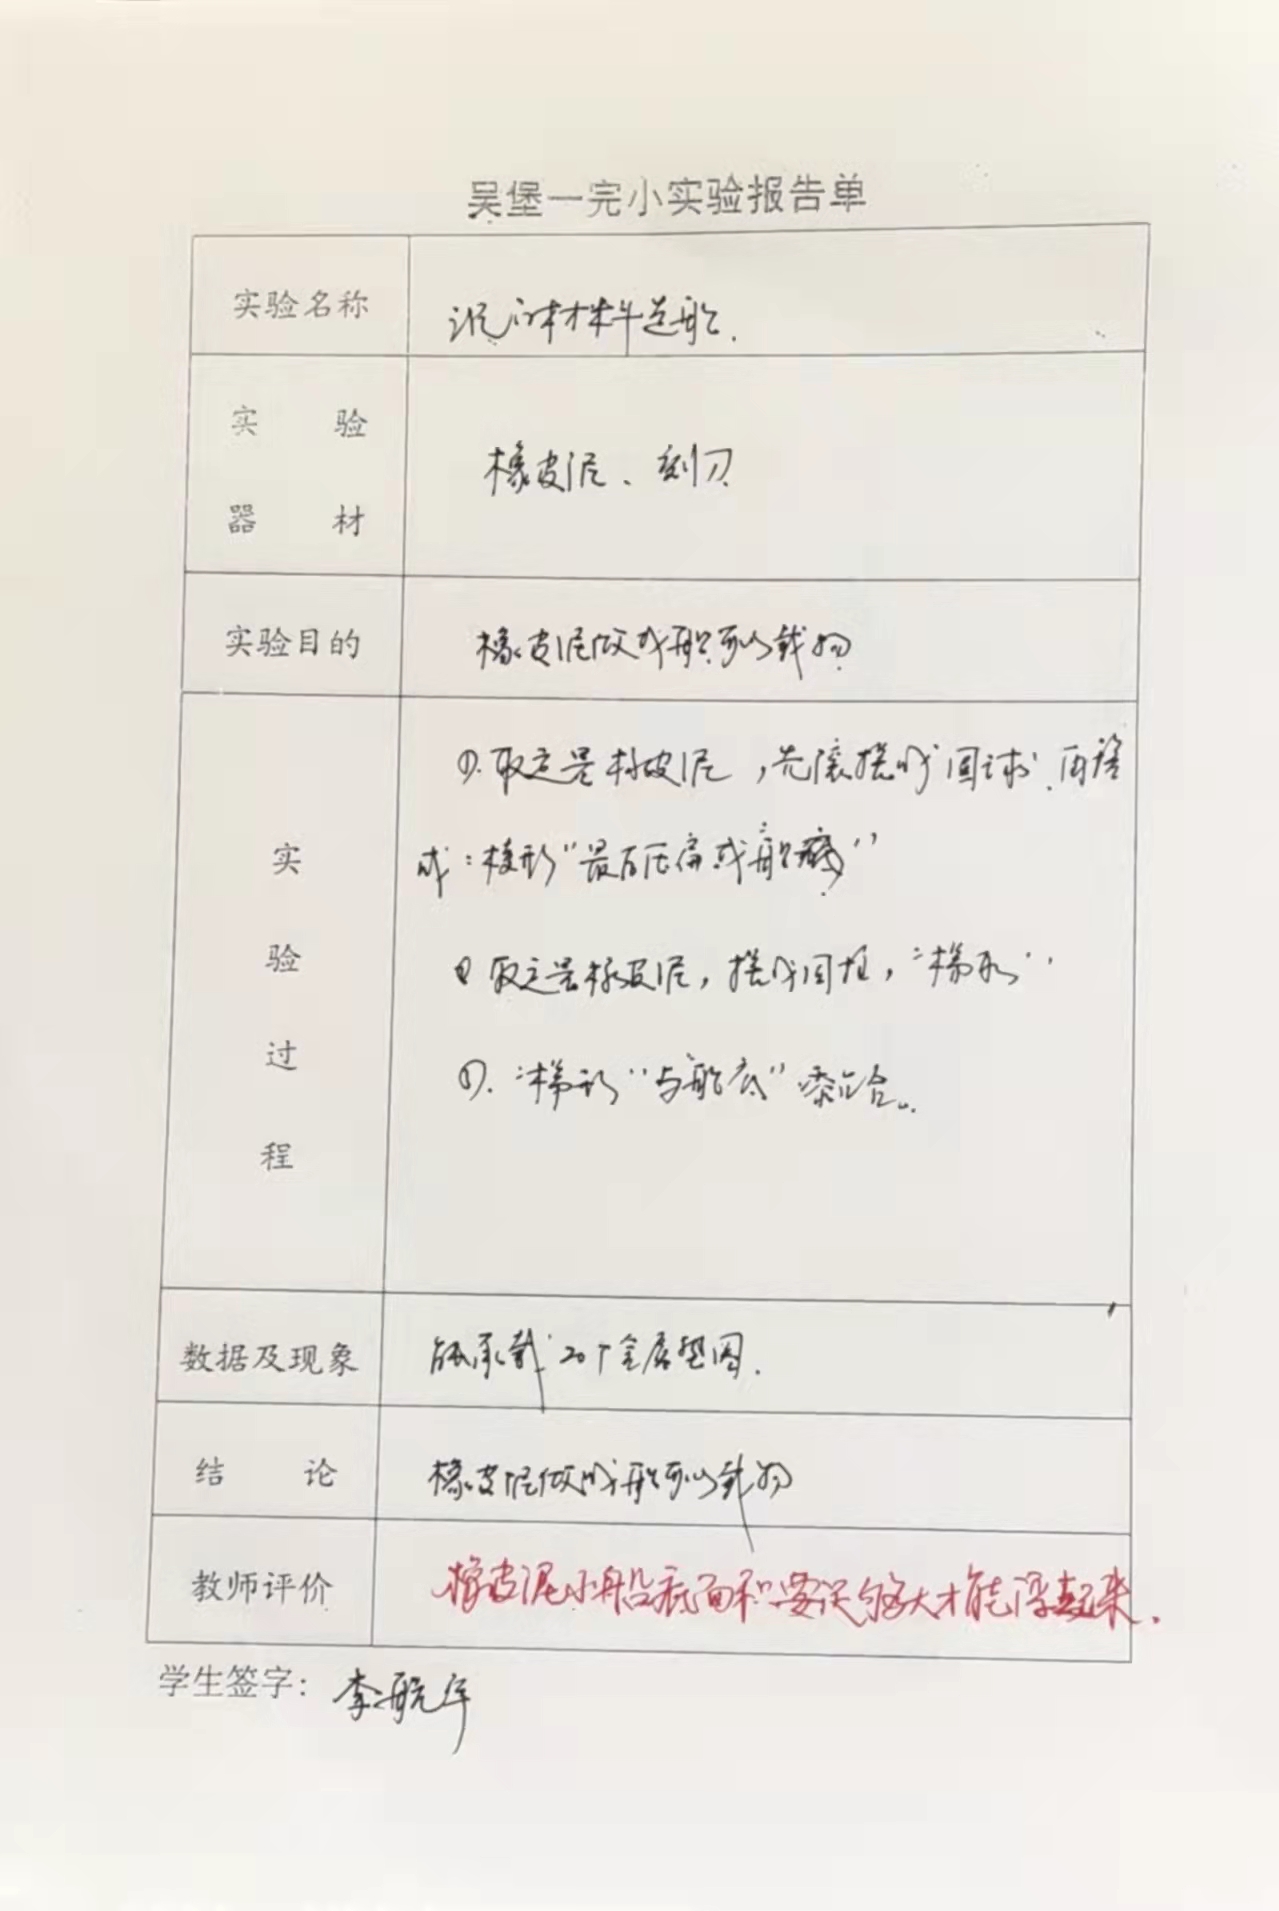 吴堡一完小实验报告单
实验名称
沉的材料造船.
实验
器材
橡皮泥、刻刀
实验目的
橡皮泥做成船可以载物
实验过程
①.取适量橡皮泥，先滚搓成圆球.再搓
成：梭形"最后压扁成船底"
② 取适量橡皮泥，搓成圆柱，"梯形"
"梯形"与船底"黏合。
数据及现象
能承载20个金属垫圈.
结论
橡皮泥做成船可以载物
教师评价
橡皮泥小船底面积要足够大才能浮起来.
学生签字：李航